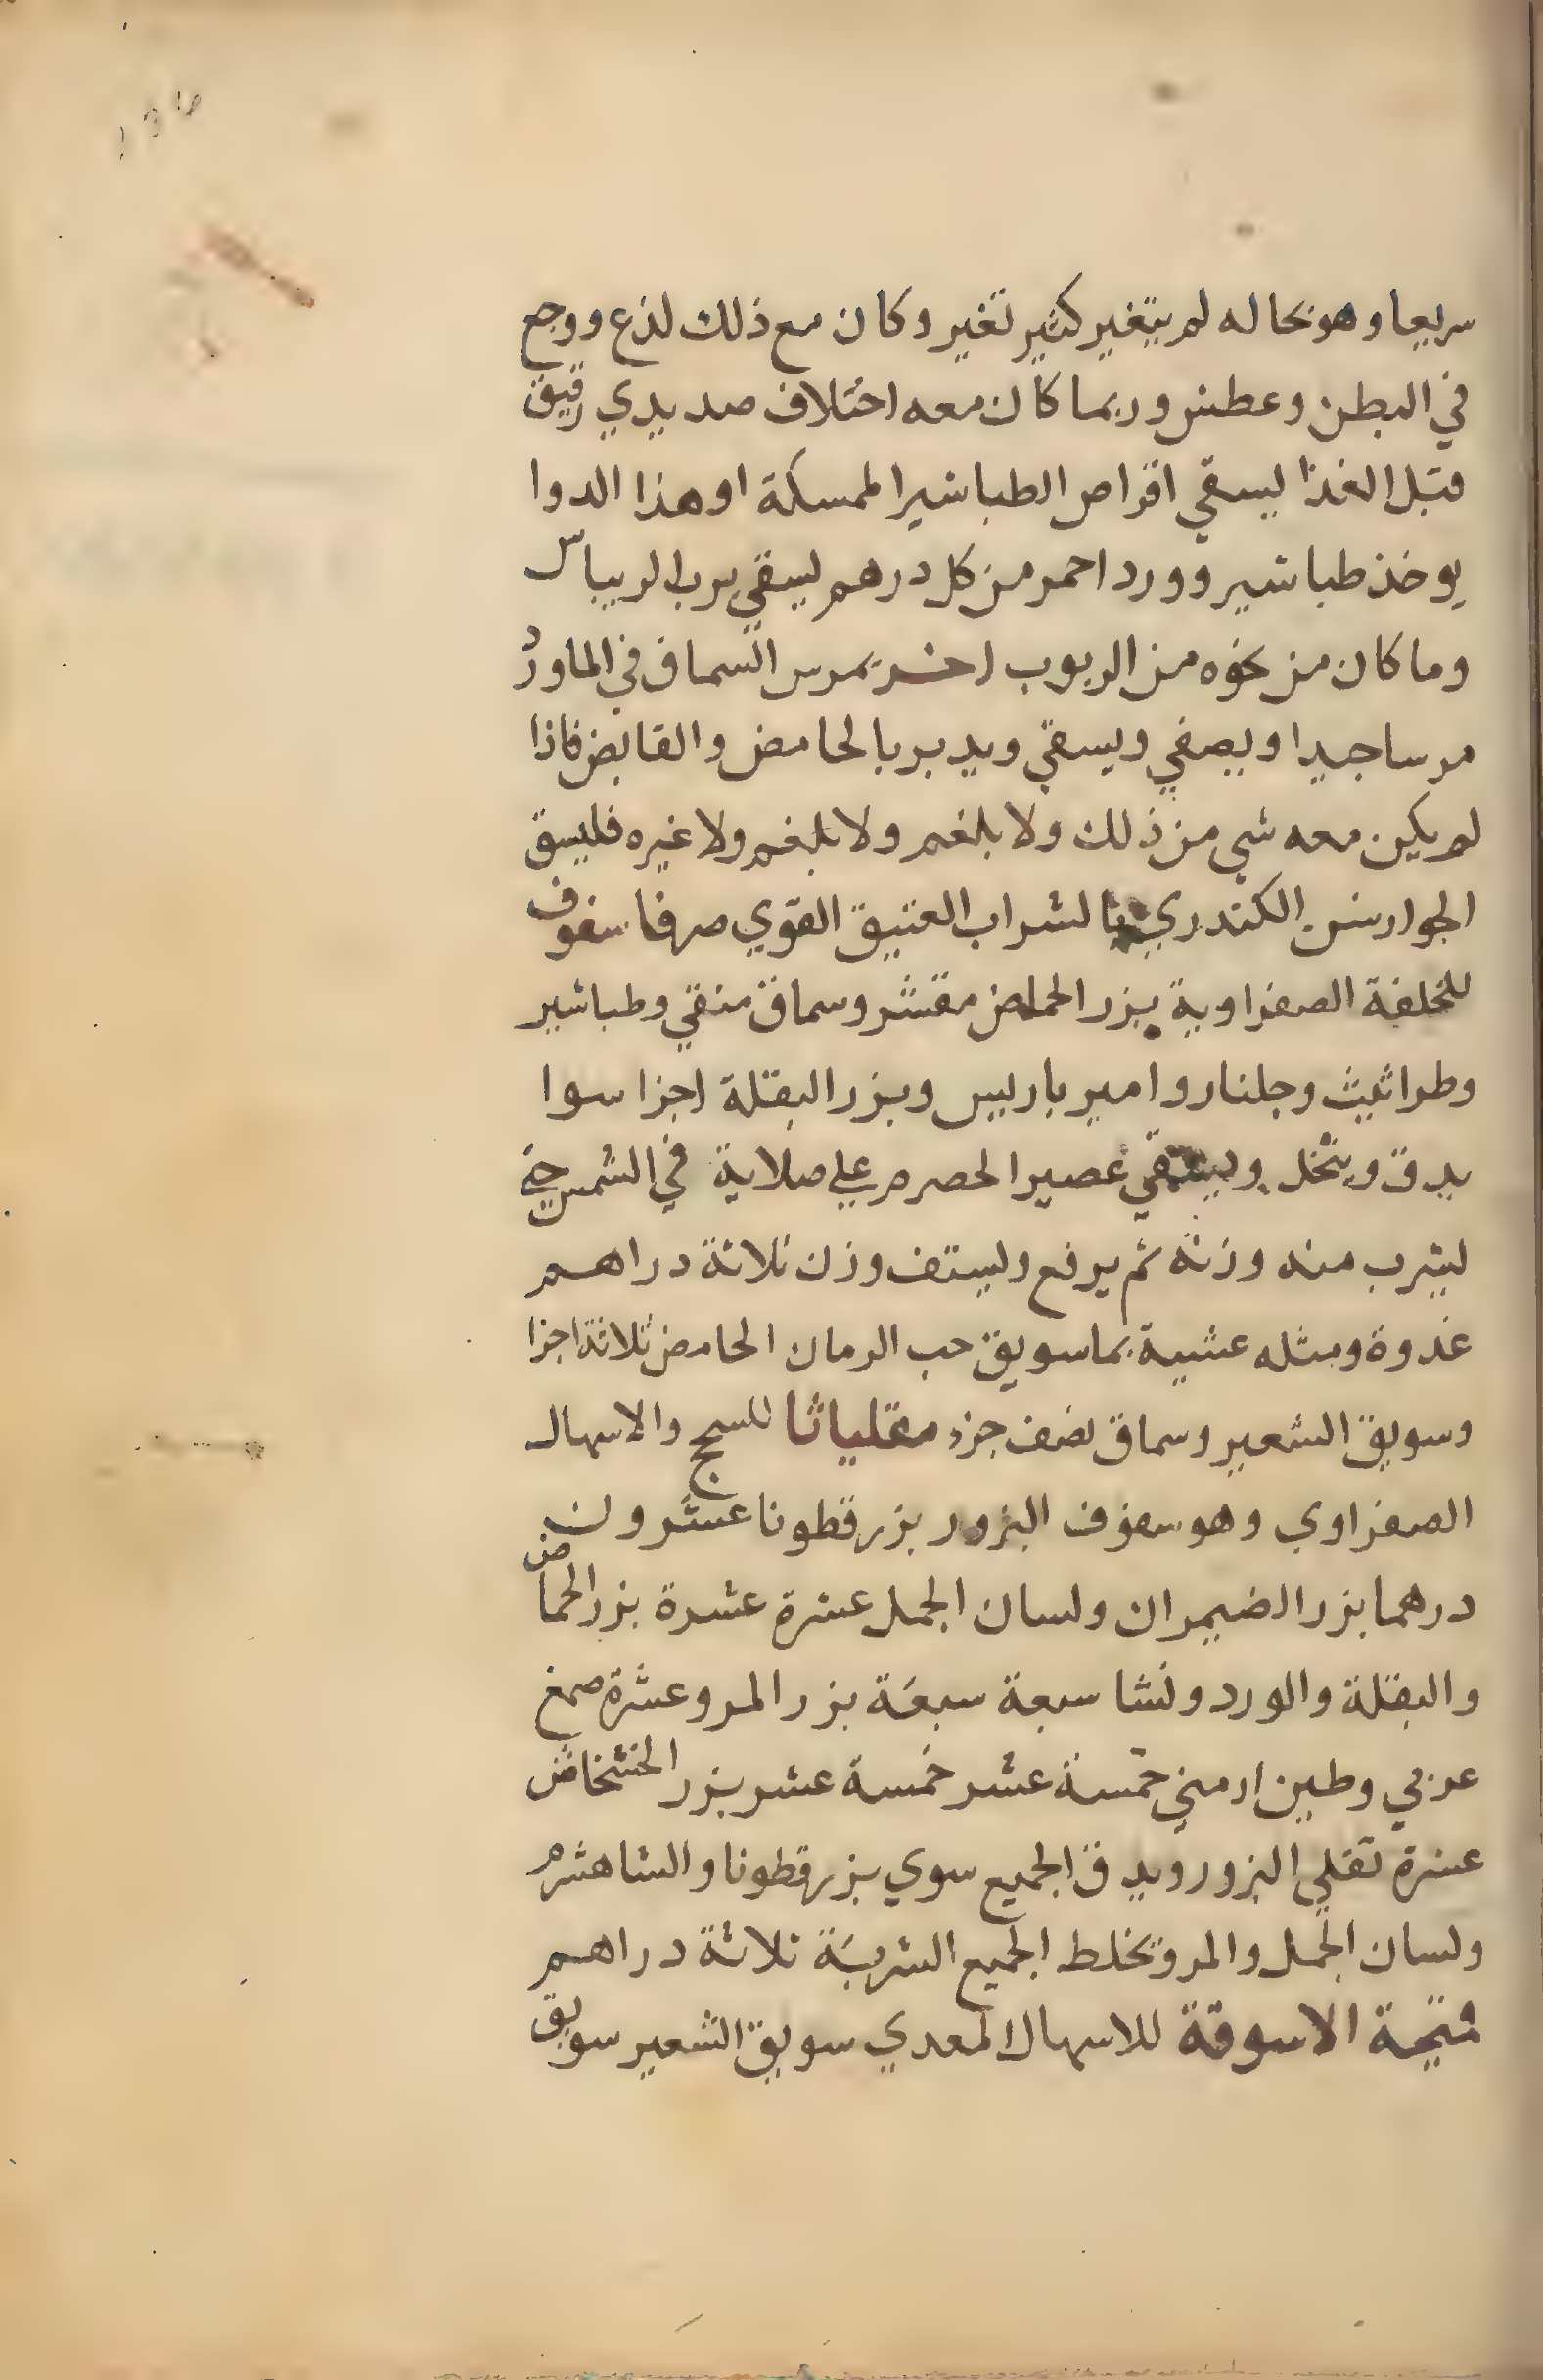 سريعا وهو بحاله لم يتغير كثير تغير وكان مع ذلك لذع ووجع
في البطن وعطش وربما كان معه اختلاف صديدي رقيق
قبل الغذا ليسقي اقراص الطباشير الممسكة او هذا الدوا
يوخذ طباشير وورد احمر من كل درهم ليسقي برب الريباس
وما كان من نحوه من الربوب اخر يمرس السماق في الماورد
مرسا جيدا ويصفي ويسقي ويدبر بالحامض والقابض فاذا
لم يكن معه شي من ذلك ولا بلغم ولا بلغم ولا غيره فليسق
الجوارشن الكندري بالشراب العتيق القوي صرفا سفوف
للخلفة الصفراوية بزر الحماض مقشر وسماق منقي وطباشير
وطراثيث وجلنار وامير باريس وبزر البقلة اجزا سوا
يدق وينخل ويسقي عصير الحصرم علي صلاية في الشمس حتي
ليشرب منه وزنه ثم يرفع وليستف وزن ثلاثة دراهم
غدوة ومثله عشية بما سويق حب الرمان الحامض ثلاثة اجزا
وسويق الشعير وسماق نصف جزء مقلياثا للسحج والاسهال
الصفراوي وهو سفوف البزور بزر قطونا عشرون
درهما بزر الضيمران ولسان الجمل عشرة عشرة بزر الحماض
والبقلة والورد ونشا سبعة سبعة بزر المرو عشرة صمغ
عربي وطين ارمني خمسة عشر خمسة عشر بزر الخشخاش
عشرة تقلي البزور ويدق الجميع سوي بزر قطونا والشاهشرم
ولسان الجمل والمرو يخلط الجميع الشربة ثلاثة دراهم
قميحة الاسوقة للاسهال المعدي سويق الشعير سويق